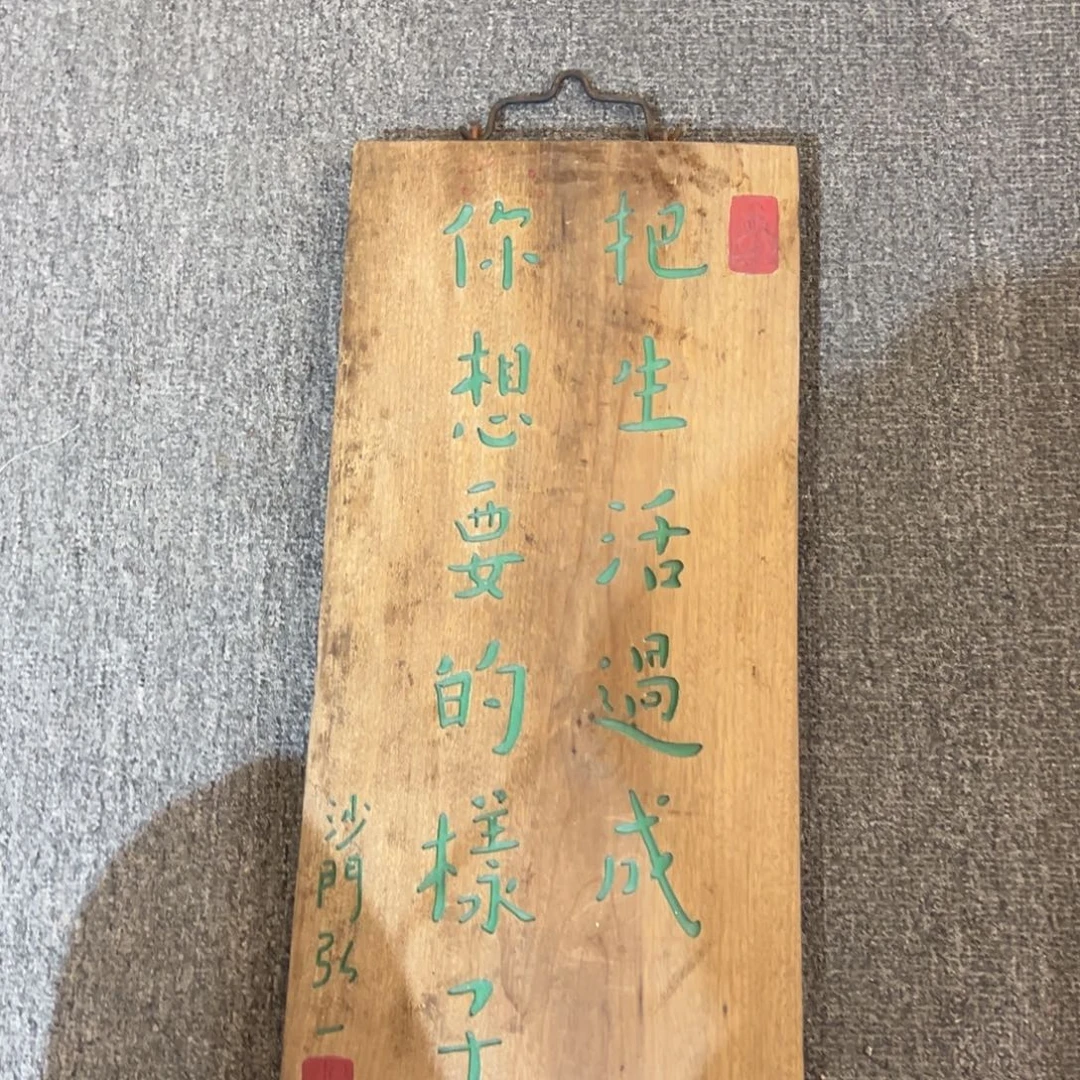 把生活過成
你想要的樣子
沙門弘一